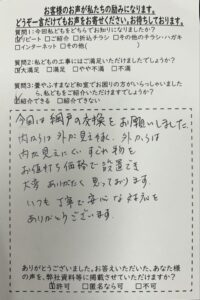 お客様のお声が私たちの励みになります。
どうぞ一言だけでもお声をお寄せください。お待ちしております。
質問1:今回私どもをどちらでお知りになりましたか？
☑リピート □ご紹介 □折込チラシ □その他のチラシ・ハガキ
□インターネット □その他(
質問2:私どもの工事にはご満足いただけましたでしょうか？
☑大満足 □満足 □やや不満 □不満
質問3:畳やふすまなど和室でお困りの方がいらっしゃいましたら、私どもをご紹介いただけますでしょうか？
☑紹介できる □紹介できない
今回は網戸の交換をお願いしました。
内からは外が見え
外からは
内が見えにくい
物を
お値打ち価格で設置でき
大変ありがたく思っております。
いつも丁寧で安心な対応を
ありがとうございます。
ありがとうございました。お答えいただいた、あなた様
の声を、弊社資料等に掲載させていただけますか？
☑許可 □匿名なら可 □不可